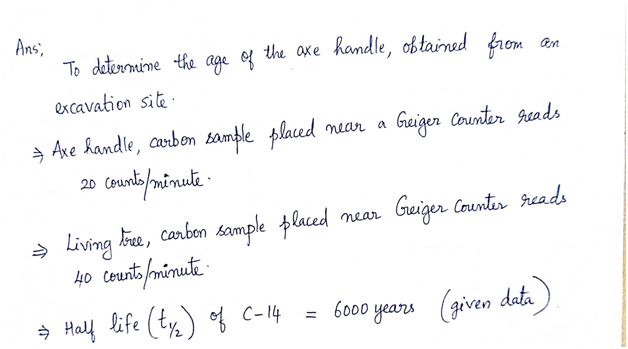 Ans;
To determine the age of the axe handle, obtained from an
excavation site.
⇒ Axe handle, carbon sample placed near a Geiger Counter reads
20 counts/minute.
⇒ Living tree, carbon sample placed near Geiger Counter reads
40 counts/minute.
⇒ Half life (t½) of C-14 = 6000 years (given data)